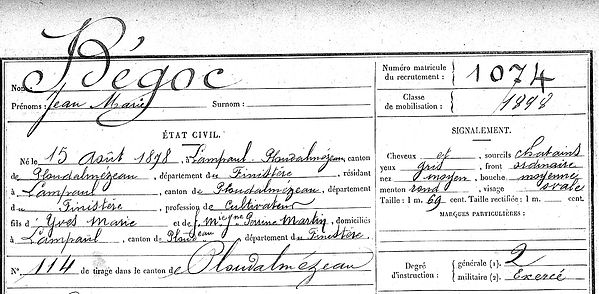 Bégoc
Nom:
Prénoms: Jean Marie Surnom:
ÉTAT CIVIL.
Né le 15 Août 1878, à Lampaul Ploudalmézeau canton
de Ploudalmézeau, département du Finistère, résidant
à Lampaul, canton de Ploudalmézeau, département
du Finistère, profession de Cultivateur
fils d' Yves Marie et de Perrine Martin, domiciliés
à Lampaul, canton de département du Finistère.
N° 114 de tirage dans le canton de Ploudalmézeau
Numéro matricule
du recrutement: 1074
Classe
de mobilisation: 1898
SIGNALEMENT.
Cheveux et sourcils chatains
yeux gris, front ordinaire
nez moyen, bouche moyenne
menton rond, visage ovale
Taille: 1 m. 69 cent. Taille rectifiée: 1 m. cent.
MARQUES PARTICULIÈRES:
Degré
d'instruction:
générale (1). 2
militaire (2). Exercé